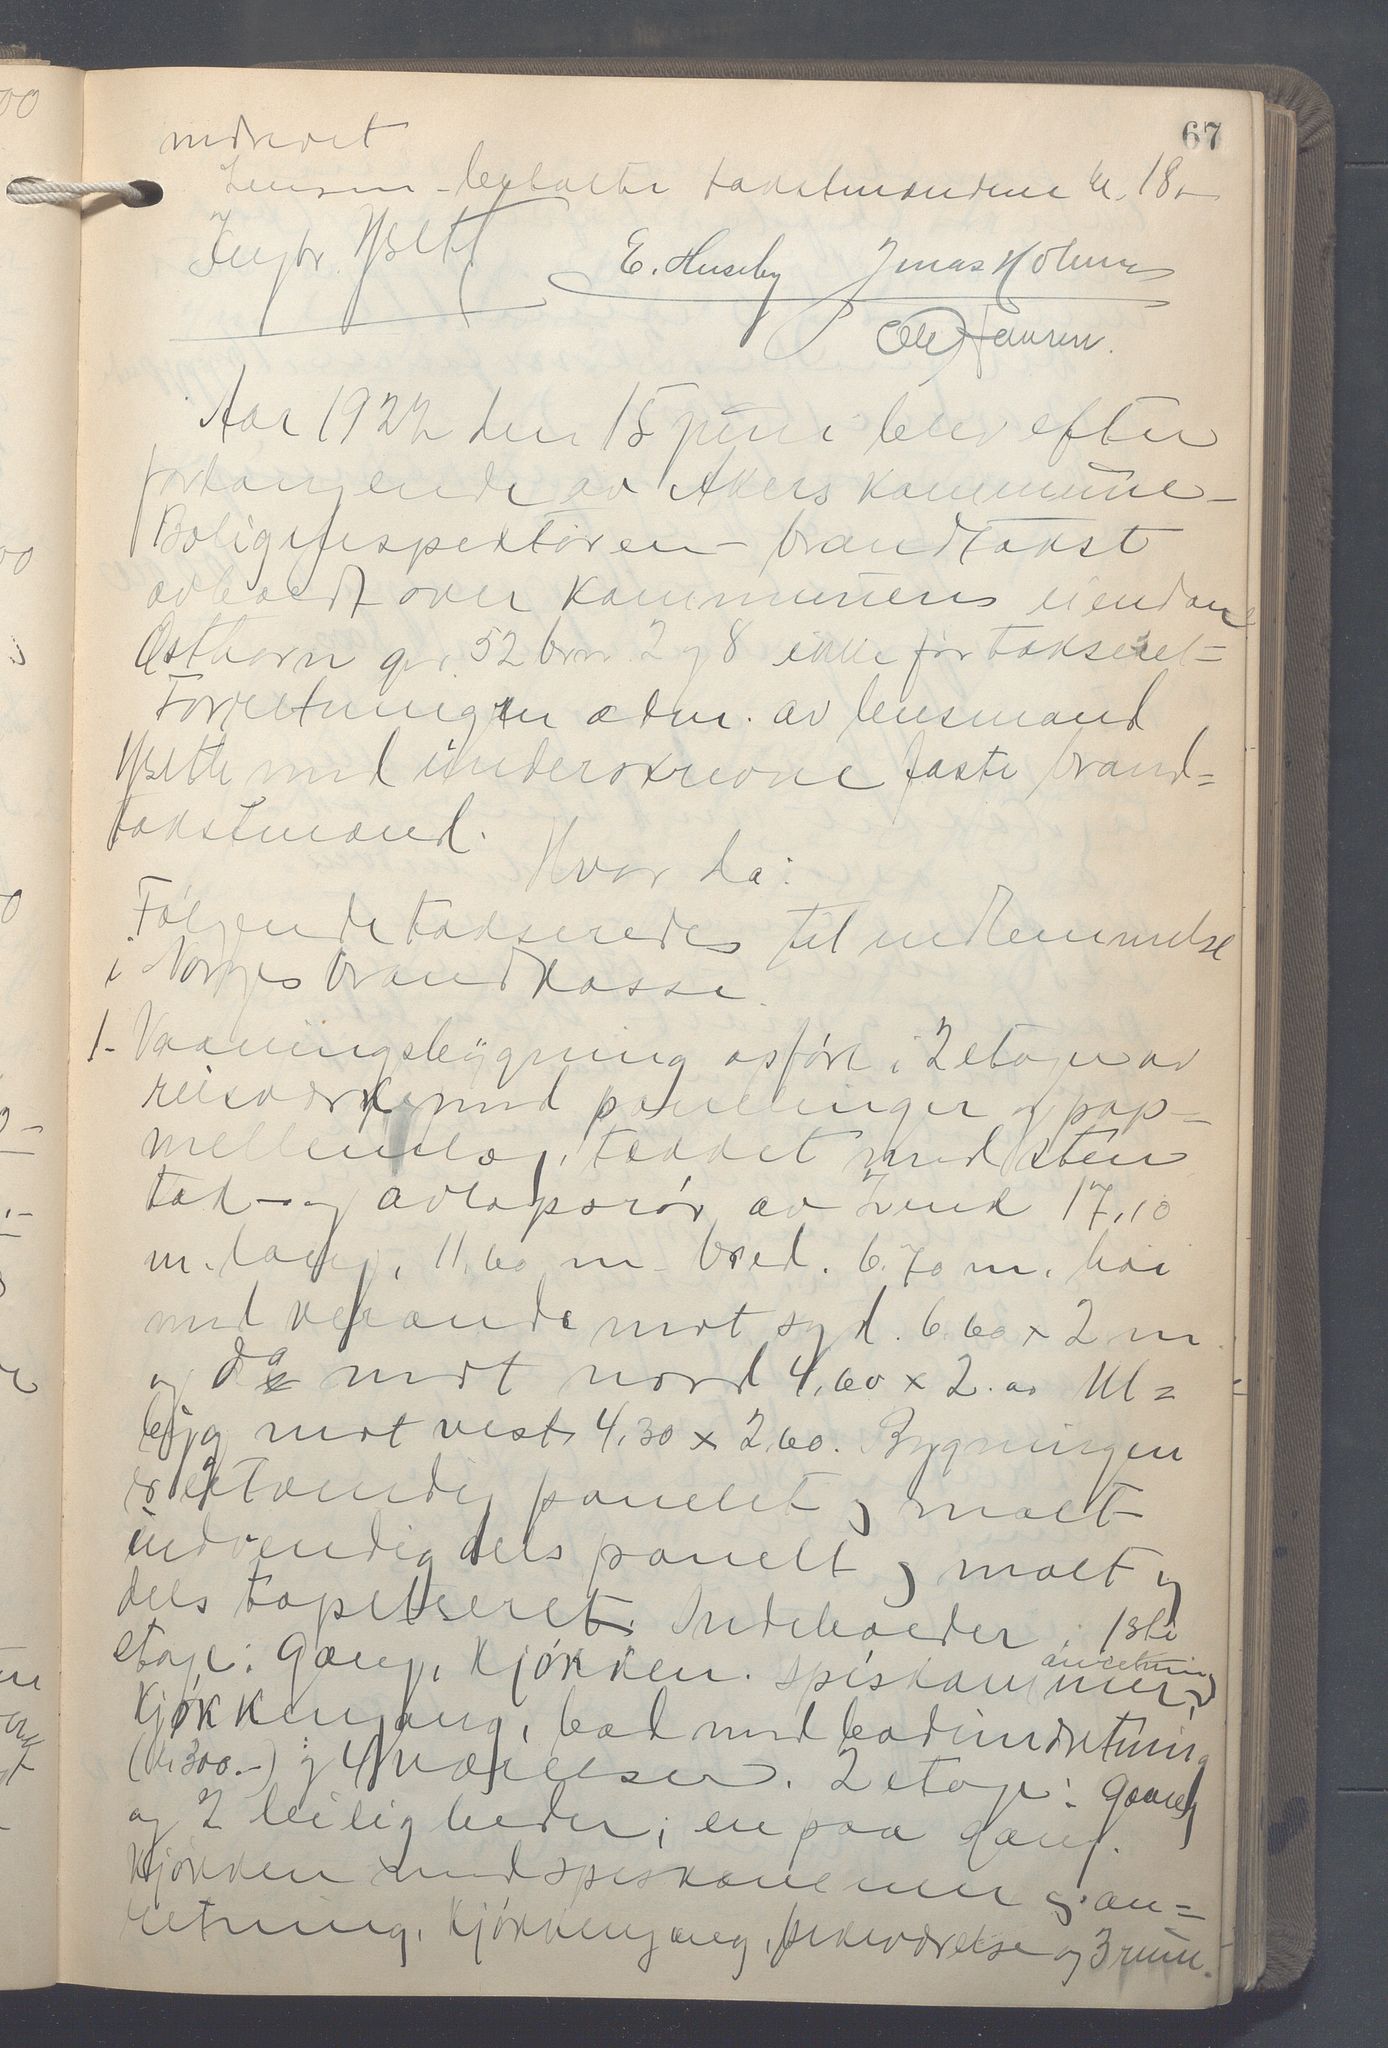 67
nedrevet
Lensm. betalte takstmændene kr. 18.-
Ingbr. Ysett
E. Huseby Jonas Holmen
Ole Jensen.
Aar 1922 den 15 juni blev efter
forlangende av Akers kommune -
Boliginspektøren - brandtakst
avholdt over kommunens eiendom
Østhorn gr. 52 brn. 2 og 8 ikke før taksert =
Forretningen adm. av lensmand
Ysett med underskrevne faste brand=
takstmænd.
Hvor da:
Følgende takseredes til indlemmelse
i Norges brandkasse.
1. Vaaningsbygning opført i 2 etager av
reisverk med panelinger og pap-
mellemlag, tækket med sten
tak- og avløpsrør av zink 17,10
m. lang, 11,60 m bred. 6.70 m. høi
med veranda mot syd. 6.60 x 2 m
og do mot nord 4,60 x 2. av Ut=
bygg mot vest 4,30 x 2,60. Bygningen
er utvendig panelt og malt
indvendig dels panelt og malt og
dels tapetseret. Indeholder i 1ste
etage: Gang, kjøkken. spiskammer, anretning
kjøkkengang, bad med badeindretning
(kr 300.-) og 4 værelser. 2 etage: Gang
og 2 leiligheder; en paa gang.
kjøkken med spiskammer og an=
retning, kjøkkengang, pikeværelse og 3 rum.